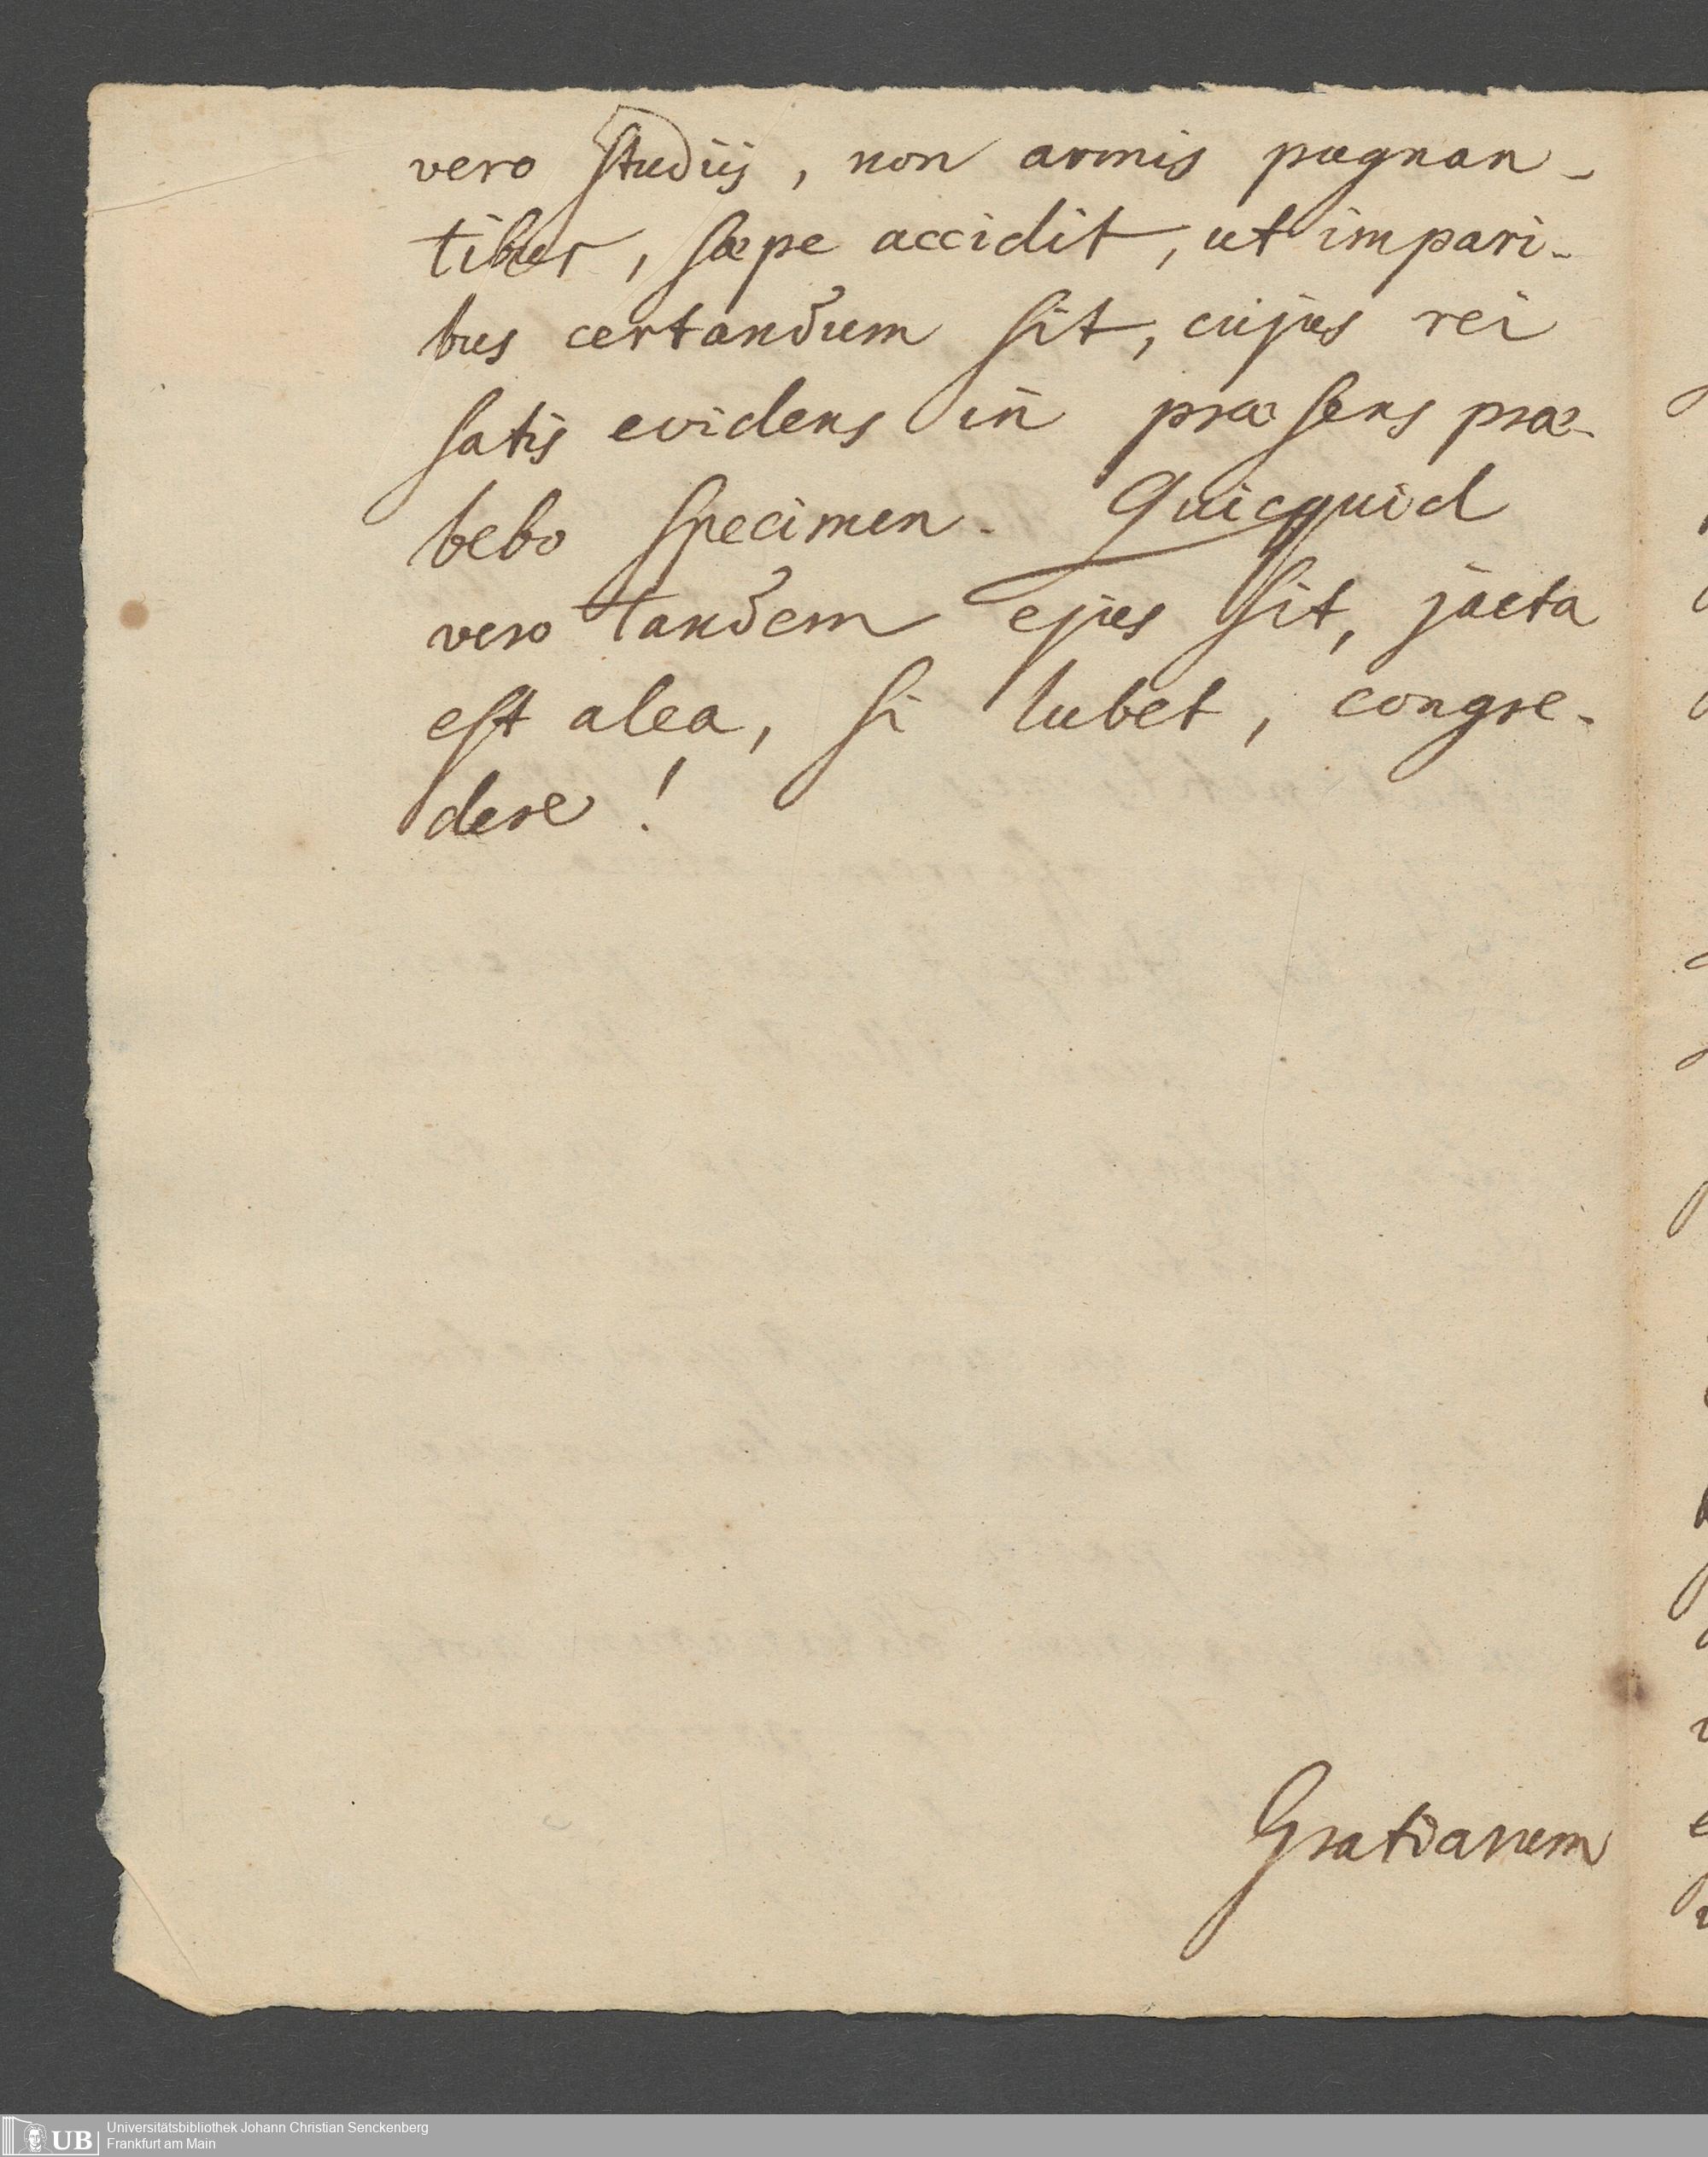 vero studiis, non armis pugnan-
tibus, sæpe accidit, ut impari-
bus certandum sit, cujus rei
satis evidens in præsens præ-
bebo specimen. Quicquid
vero tandem ejus sit, jacta
est alea, si lubet, congre-
dere!
Gratiarum
UB
Universitätsbibliothek Johann Christian Senckenberg
Frankfurt am Main